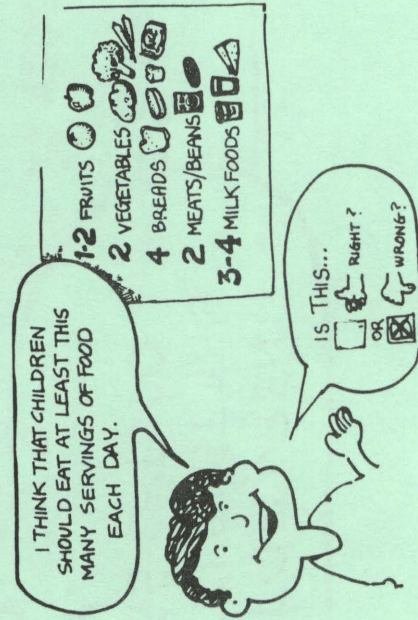 I THINK THAT CHILDREN
SHOULD EAT AT LEAST THIS
MANY SERVINGS OF FOOD
EACH DAY.
1-2 FRUITS
2 VEGETABLES
4 BREADS
2 MEATS/BEANS
3-4 MILK FOODS
IS THIS...
RIGHT?
OR
WRONG?